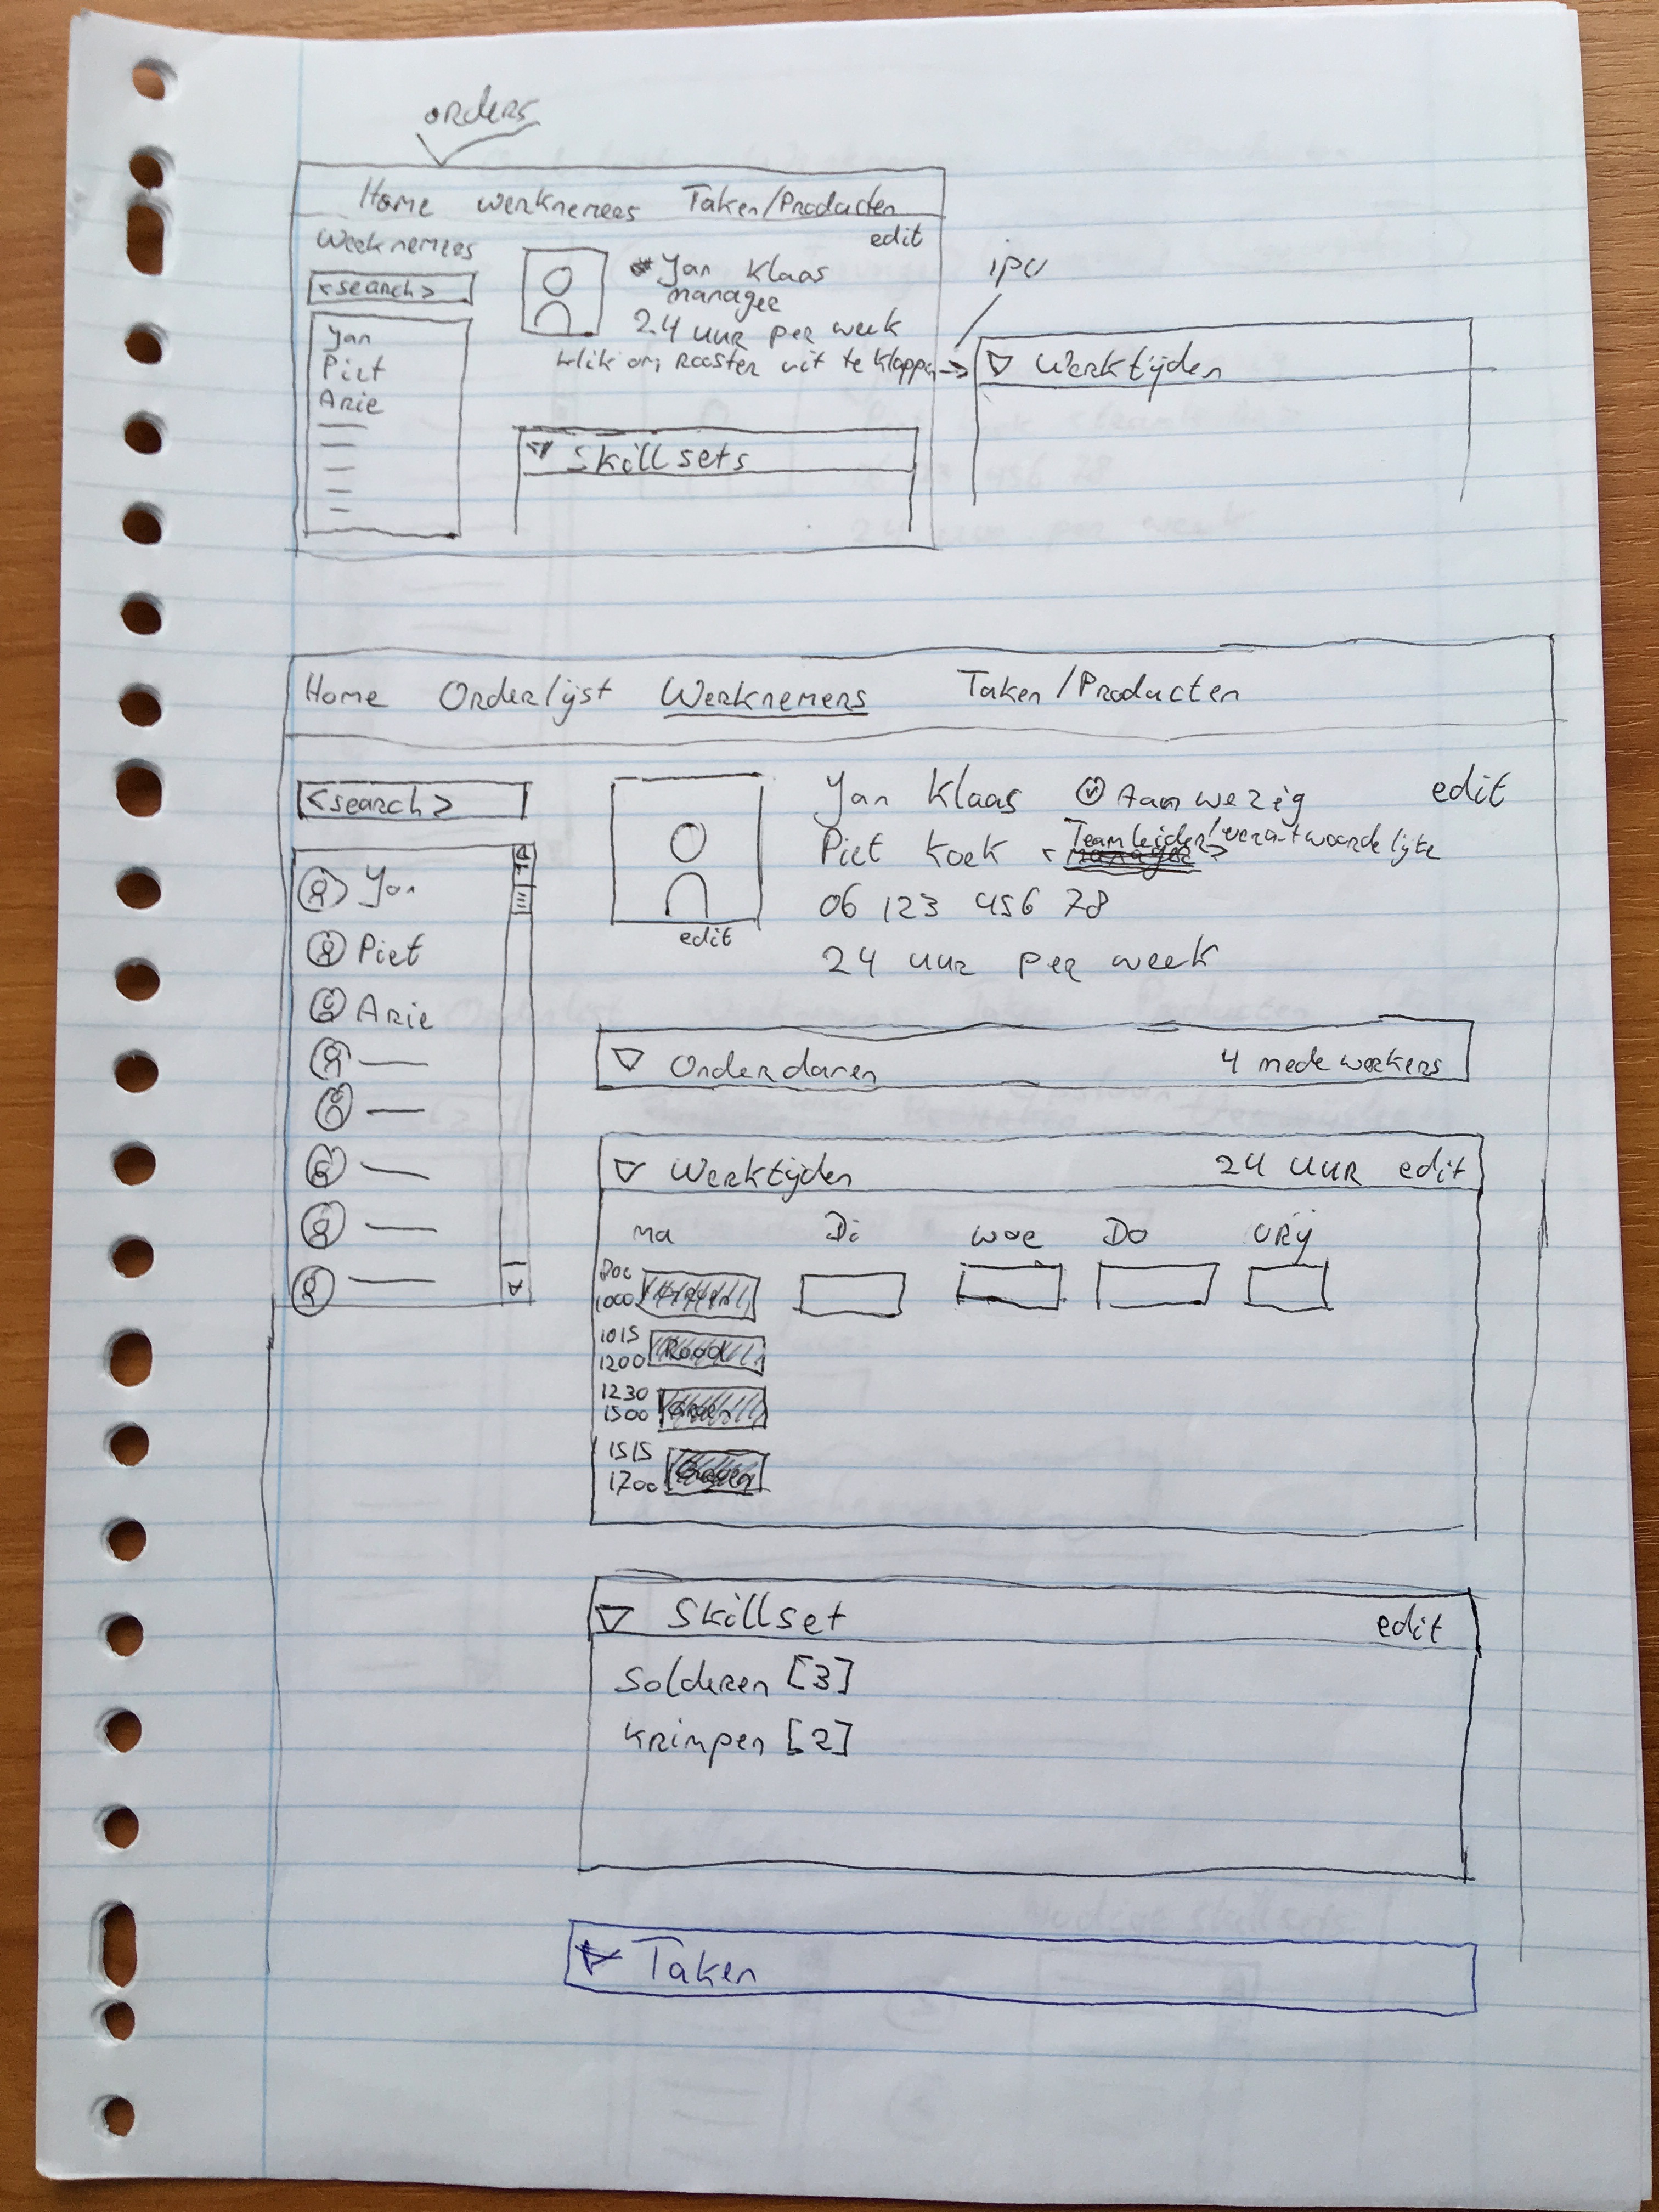 orders
Home werknemers Taken/Producten
Werknemers
edit
<search>
Jan Klaas
manager
24 uur per week
klik om rooster uit te klappen
ipv
Werktijden
Jan
Piet
Arie
Skillsets
Home Orderlijst Werknemers Taken/Producten
<search>
Jan Klaas Aanwezig edit
Piet Koek < Teamleider/verantwoordelijke
manager >
06 123 456 78
24 uur per week
edit
Jan
Piet
Arie
Onderdanen 4 medewerkers
Werktijden 24 uur edit
Ma Di Woe Do Vrij
800
1000
1015
1200 Rood
1230
1500
1515
1700
Skillset edit
Solderen [3]
Krimpen [2]
Taken